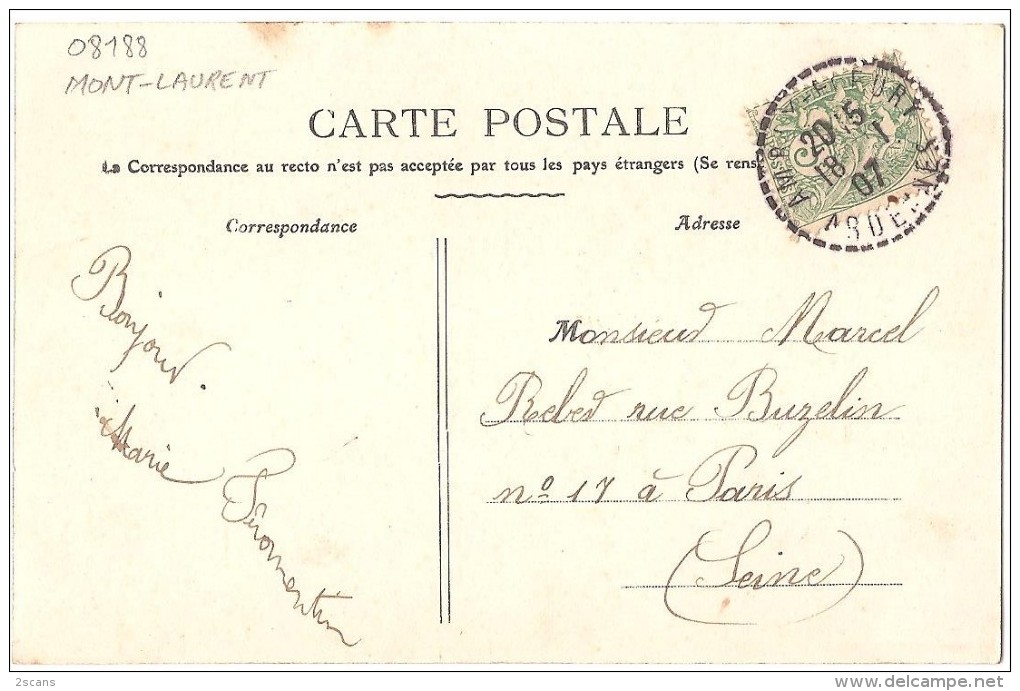 08188
MONT-LAURENT
CARTE POSTALE
La Correspondance au recto n'est pas acceptée par tous les pays étrangers (Se rens
Correspondance
Adresse
20 15
18 - 1
07
ARDENNES
Bonjour.
Marie
Monsieur Marcel
Rebed rue Buzelin
nº 17 à Paris
(Seine)
2scans
www.delcampe.net